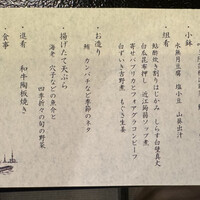 ・小鉢
水無月豆腐　塩小豆　山葵出汁
・組肴
鮎酢炊き割りはじかみ　しらす白髪真丈
白瓜昆布押し　近江蒟蒻ソップ煮
寄せパプリカとフォアグラコンビーフ
白ずいき吉野煮　もぐさ生茶
・お造り
鮪　カンパチなど季節のネタ
・揚げたて天ぷら
海老　穴子などの魚介と
四季折々の旬の野菜
・進肴
和牛陶板焼き
・食事